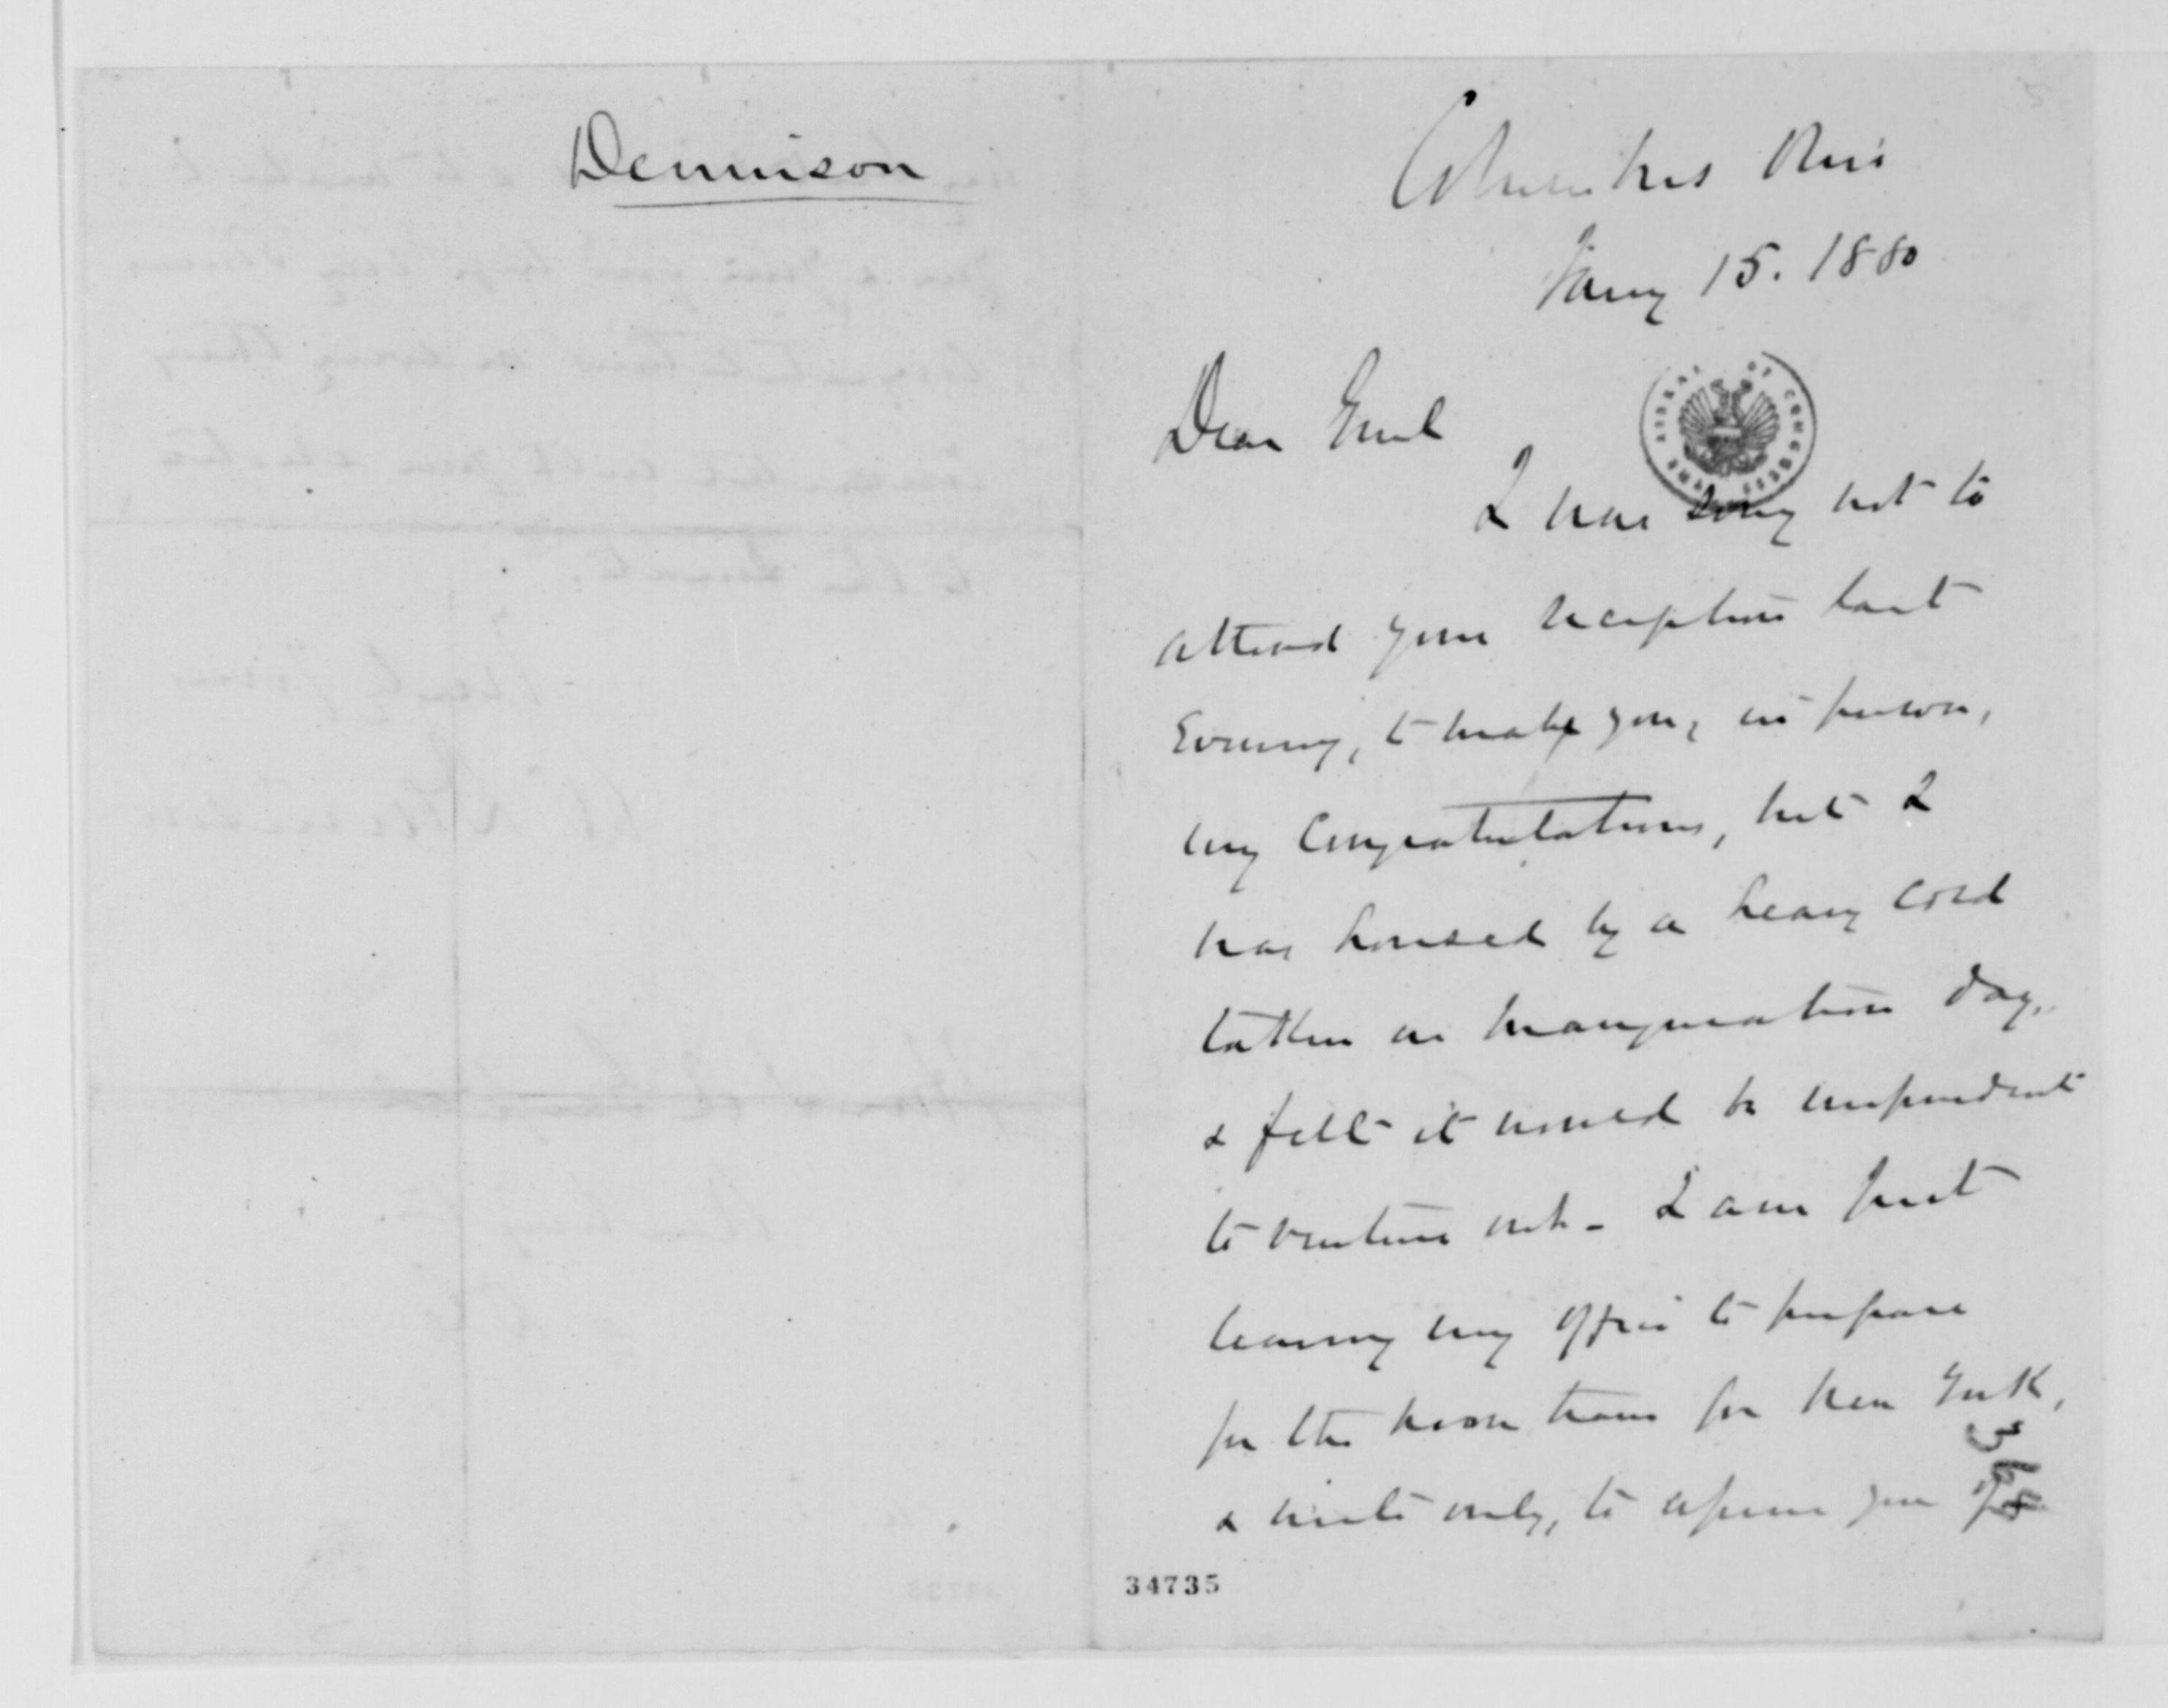 Dennison
Columbus Ohio
Jany 15. 1880
Dear Genl
LIBRARY OF CONGRESS
I was sorry not to
attend your reception last
Evening, to make you, in person,
my Congratulations, but I
was housed by a heavy cold
taken on Inauguration day,
& felt it would be imprudent
to venture out - I am just
leaving my office to prepare
for the noon train for New York,
& write only, to assure you of
34735